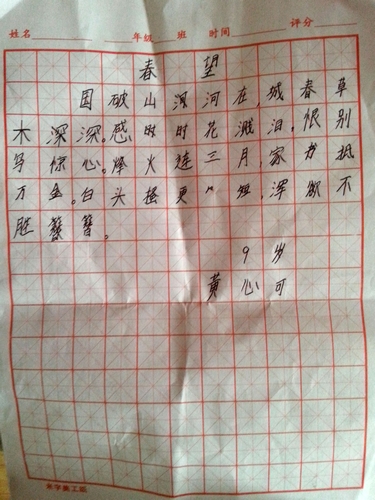 姓名 年级 班 时间 评分
春望
国破山河在,城春草
木深深。感时时花溅泪,恨别
鸟惊心。烽火连三月,家书抵
万金。白头搔更〃短,浑欲不
胜簪簪。
9岁
黄心可